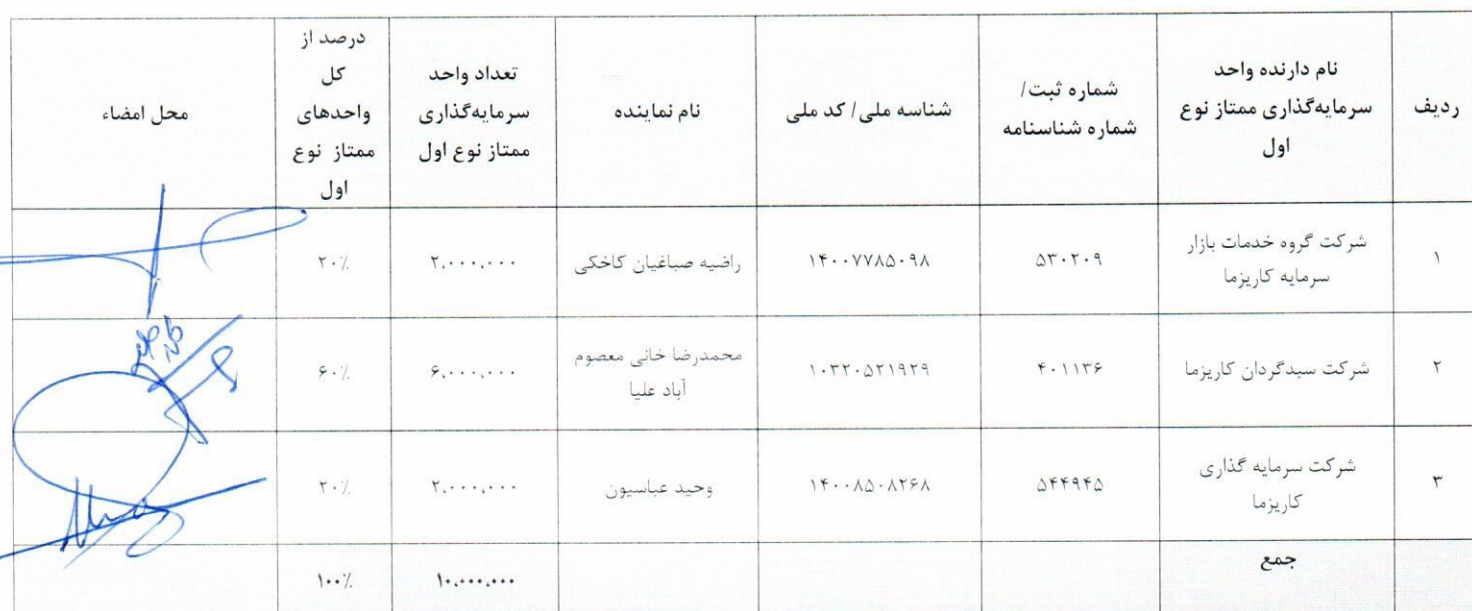 ردیف
نام دارنده واحد
سرمایه‌گذاری ممتاز نوع
اول
شماره ثبت/
شماره شناسنامه
شناسه ملی/ کد ملی
نام نماینده
تعداد واحد
سرمایه‌گذاری
ممتاز نوع اول
درصد از
کل
واحدهای
ممتاز نوع
اول
محل امضاء
۱
شرکت گروه خدمات بازار
سرمایه کاریزما
۵۳۰۲۰۹
۱۴۰۰۷۷۸۵۰۹۸
راضیه صباغیان کاخکی
۲,۰۰۰,۰۰۰
۲۰٪
۲
شرکت سبدگردان کاریزما
۴۰۱۱۳۶
۱۰۳۲۰۵۲۱۹۲۹
محمدرضا خانی معصوم
آباد علیا
۶,۰۰۰,۰۰۰
۶۰٪
۳
شرکت سرمایه گذاری
کاریزما
۵۴۴۹۴۵
۱۴۰۰۸۵۰۸۲۶۸
وحید عباسیون
۲,۰۰۰,۰۰۰
۲۰٪
جمع
۱۰,۰۰۰,۰۰۰
۱۰۰٪